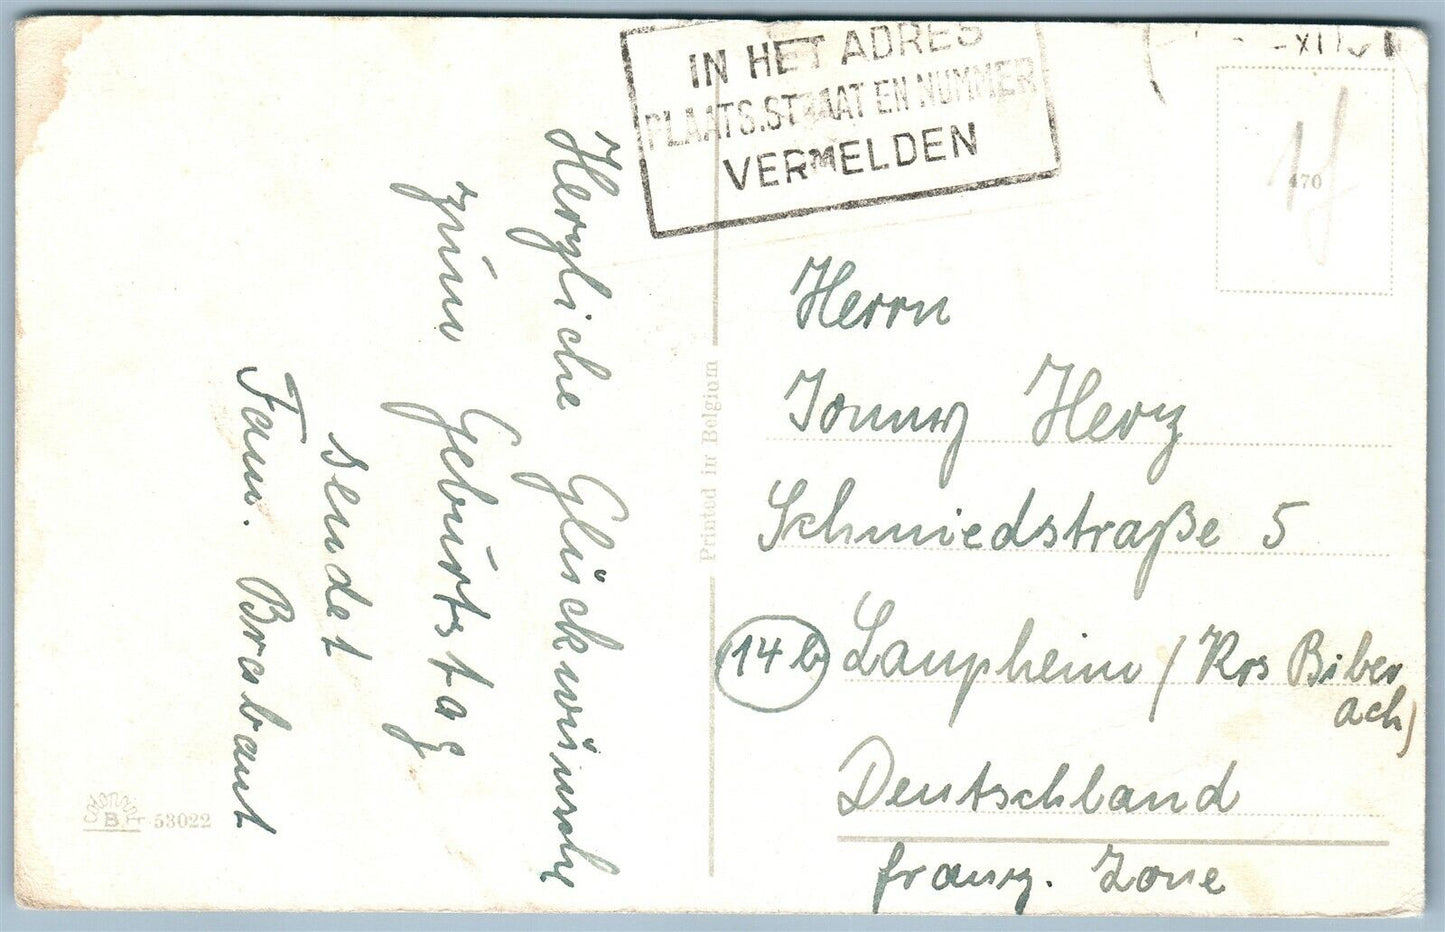 IN HET ADRES
PLAATS.STRAAT EN NUMMER
VERMELDEN
XI
470
Herzliche Glückwünsche
zum Geburtstag
sendet
Fam. Bresbaut
Herrn
Herz
Schmiedstraße 5
14b Laupheim / Krs Biber
ach)
Deutschland
franz. Zone
Printed in Belgium
B 53022